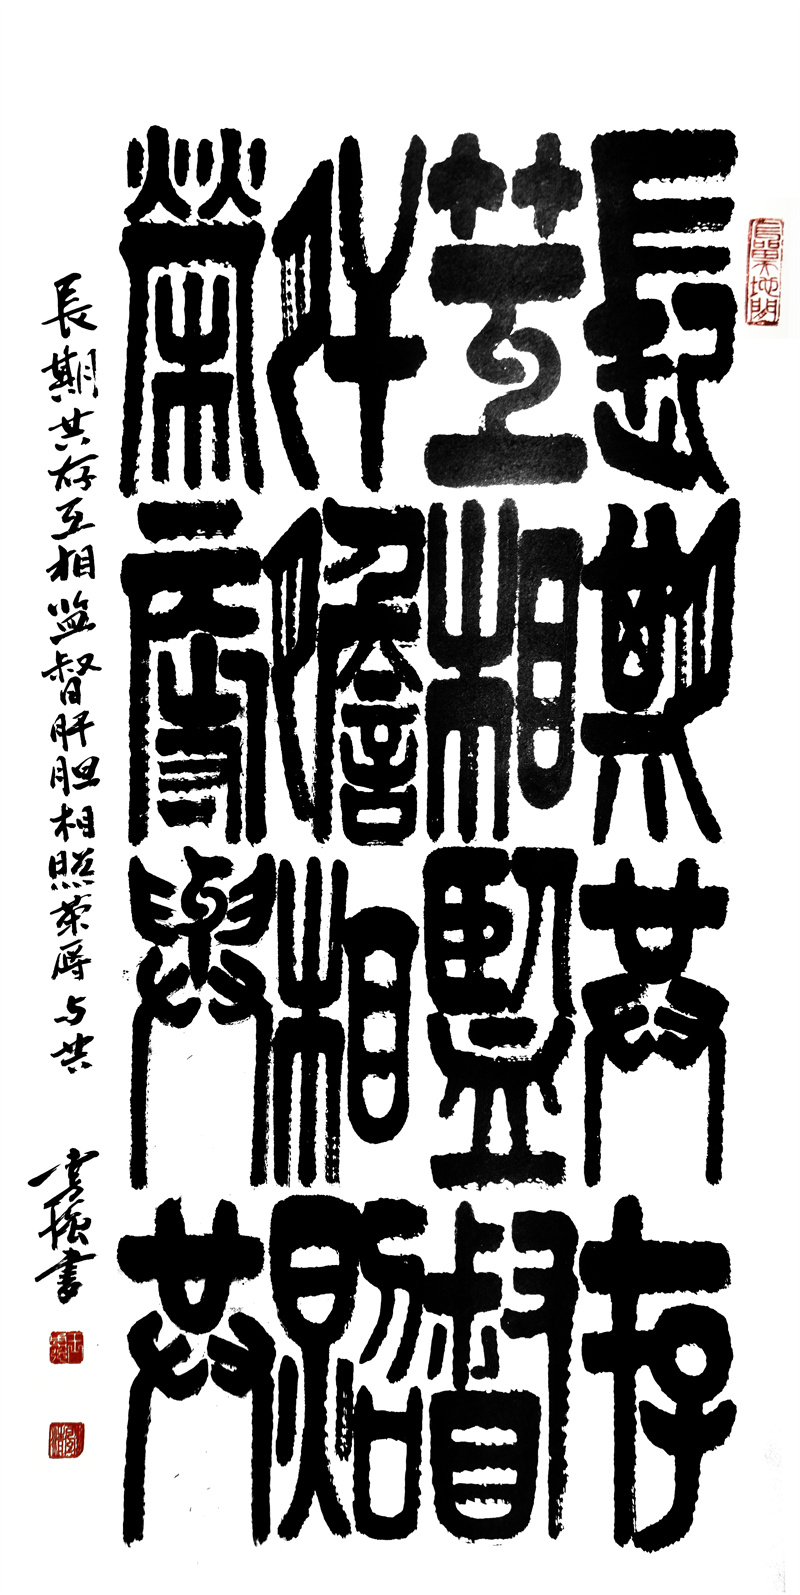 長期共存
互相監督
肝膽相照
榮辱與共
長期共存互相监督肝胆相照荣辱与共